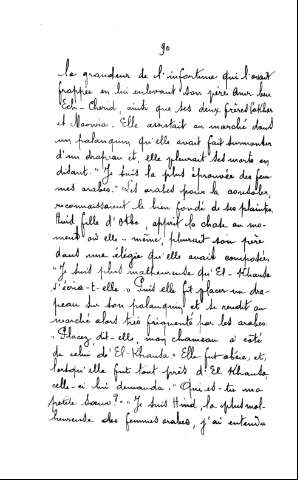 90
la grandeur de l'infortune qui l'avait
frappée en lui enlevant son père Amr ben
Ech-Cherid, ainsi que ses deux frères Cakher
et Maowia. Elle assistait au marché dans
un palanquin qu'elle avait fait surmonter
d'un drapeau et, elle pleurait ses morts en
disant. "Je suis la plus éprouvée des fem-
mes arabes." Les arabes pour la consoler,
reconnaissaient le bien fondé de ses plaintes.
Hind fille d'Otba, apprit la chose au mo-
ment où elle-même, pleurait son père
dans une élégie qu'elle avait composée.
"Je suis plus malheureuse qu'El-Khansa
s'écria-t-elle." Puis elle fit placer un dra-
peau sur son palanquin et se rendit au
marché alors très fréquenté par les arabes.
"Placez, dit-elle, mon chameau à côté
de celui d'El-Khansa." Elle fut obéie, et,
lorsqu'elle fut tout près d'El Khansa,
celle-ci lui demanda. "Qui es-tu ma
petite sœur?" - "Je suis Hind, la plus mal-
heureuse des femmes arabes, j'ai entendu